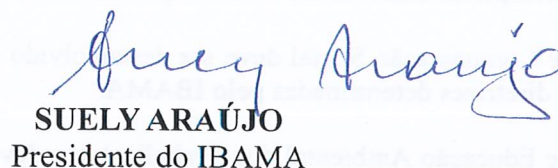 Suely Araújo
SUELY ARAÚJO
Presidente do IBAMA